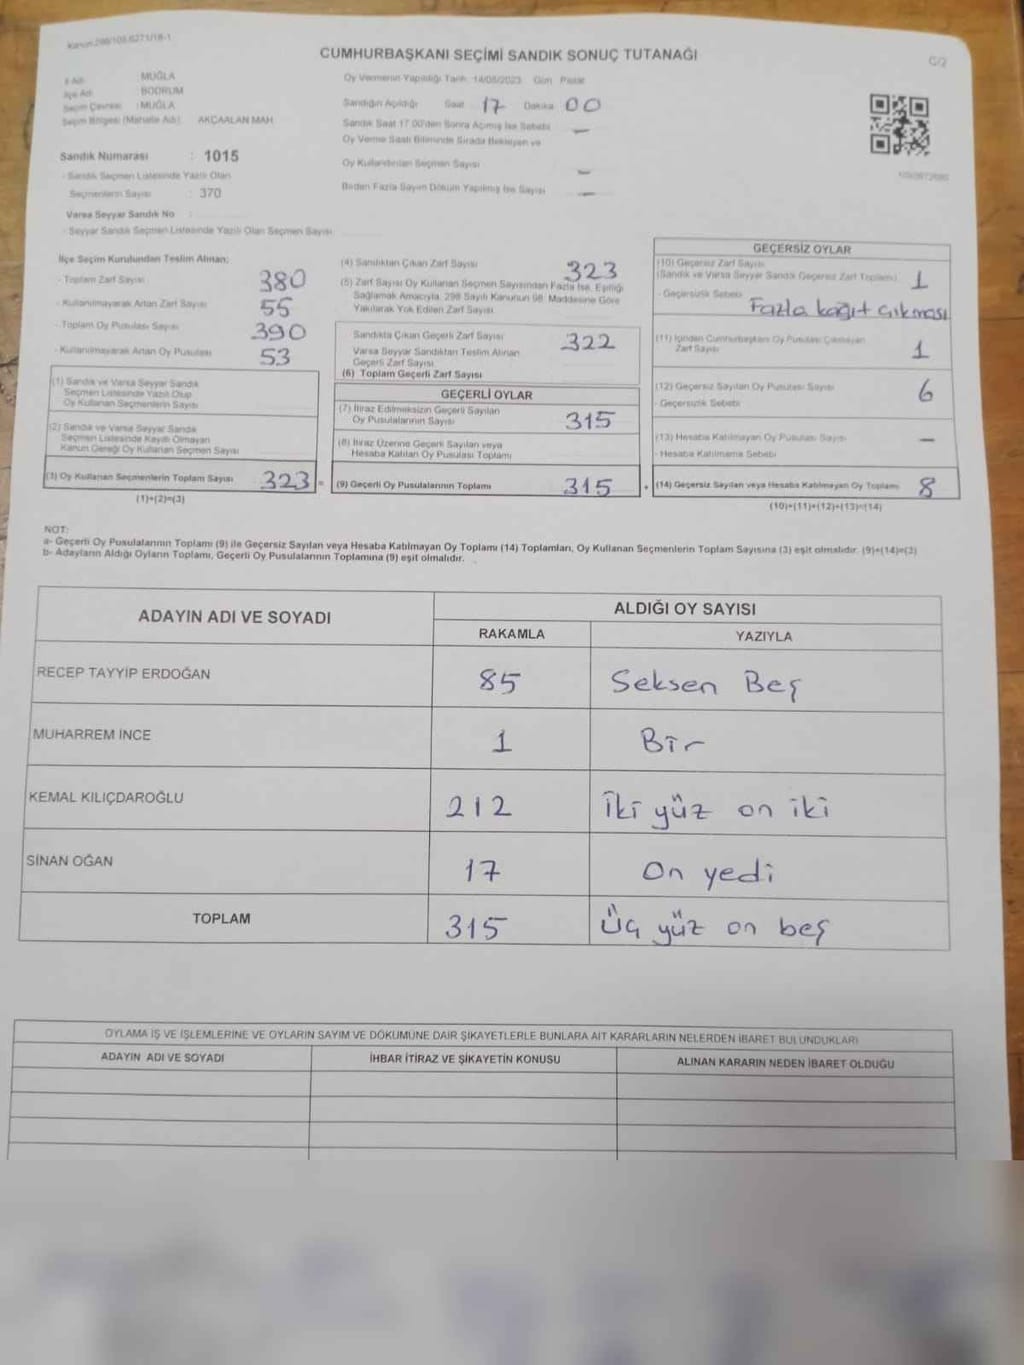 Kanun:298/108.6271/18-1
CUMHURBAŞKANI SEÇİMİ SANDIK SONUÇ TUTANAĞI
İl Adı : MUĞLA
İlçe Adı : BODRUM
Seçim Çevresi : MUĞLA
Seçim Bölgesi (Mahalle Adı) : AKÇAALAN MAH.
Sandık Numarası : 1015
- Sandık Seçmen Listesinde Yazılı Olan
Seçmenlerin Sayısı : 370
Varsa Seyyar Sandık No
- Seyyar Sandık Seçmen Listesinde Yazılı Olan Seçmen Sayısı
Oy Vermenin Yapıldığı Tarih: 14/05/2023 Gün: Pazar
Sandığın Açıldığı Saat 17 Dakika 00
Sandık Saat 17.00'den Sonra Açılmış İse Sebebi —
Oy Verme Saati Bitiminde Sırada Bekleyen ve
Oy Kullandırılan Seçmen Sayısı —
Birden Fazla Sayım Döküm Yapılmış İse Sayısı —
İlçe Seçim Kurulundan Teslim Alınan;
- Toplam Zarf Sayısı 380
- Kullanılmayarak Artan Zarf Sayısı 55
- Toplam Oy Pusulası Sayısı 390
- Kullanılmayarak Artan Oy Pusulası 53
(1) Sandık ve Varsa Seyyar Sandık
Seçmen Listesinde Yazılı Olup
Oy Kullanan Seçmenlerin Sayısı
(2) Sandık ve Varsa Seyyar Sandık
Seçmen Listesinde Kayıtlı Olmayan
Kanun Gereği Oy Kullanan Seçmen Sayısı
(3) Oy Kullanan Seçmenlerin Toplam Sayısı 323 =
(1)+(2)=(3)
(4) Sandıktan Çıkan Zarf Sayısı 323
(5) Zarf Sayısı Oy Kullanan Seçmen Sayısından Fazla İse, Eşitliği
Sağlamak Amacıyla, 298 Sayılı Kanunun 98. Maddesine Göre
Yakılarak Yok Edilen Zarf Sayısı
Sandıkta Çıkan Geçerli Zarf Sayısı 322
Varsa Seyyar Sandıktan Teslim Alınan
Geçerli Zarf Sayısı
(6) Toplam Geçerli Zarf Sayısı
GEÇERLİ OYLAR
(7) İtiraz Edilmeksizin Geçerli Sayılan
Oy Pusulalarının Sayısı 315
(8) İtiraz Üzerine Geçerli Sayılan veya
Hesaba Katılan Oy Pusulası Toplamı
(9) Geçerli Oy Pusulalarının Toplamı 315 +
GEÇERSİZ OYLAR
(10) Geçersiz Zarf Sayısı
(Sandık ve Varsa Seyyar Sandık Geçersiz Zarf Toplamı) 1
- Geçersizlik Sebebi Fazla kağıt çıkması
(11) İçinden Cumhurbaşkanı Oy Pusulası Çıkmayan
Zarf Sayısı 1
(12) Geçersiz Sayılan Oy Pusulası Sayısı 6
- Geçersizlik Sebebi
(13) Hesaba Katılmayan Oy Pusulası Sayısı —
- Hesaba Katılmama Sebebi
(14) Geçersiz Sayılan veya Hesaba Katılmayan Oy Toplamı 8
(10)+(11)+(12)+(13)=(14)
NOT:
a- Geçerli Oy Pusulalarının Toplamı (9) ile Geçersiz Sayılan veya Hesaba Katılmayan Oy Toplamı (14) Toplamları, Oy Kullanan Seçmenlerin Toplam Sayısına (3) eşit olmalıdır. (9)+(14)=(3)
b- Adayların Aldığı Oyların Toplamı, Geçerli Oy Pusulalarının Toplamına (9) eşit olmalıdır.
ADAYIN ADI VE SOYADI ALDIĞI OY SAYISI
RAKAMLA YAZIYLA
RECEP TAYYİP ERDOĞAN 85 Seksen Beş
MUHARREM İNCE 1 Bir
KEMAL KILIÇDAROĞLU 212 İki yüz on iki
SİNAN OĞAN 17 On yedi
TOPLAM 315 Üç yüz on beş
OYLAMA İŞ VE İŞLEMLERİNE VE OYLARIN SAYIM VE DÖKÜMÜNE DAİR ŞİKAYETLERLE BUNLARA AİT KARARLARIN NELERDEN İBARET BULUNDUKLARI
ADAYIN ADI VE SOYADI İHBAR İTİRAZ VE ŞİKAYETİN KONUSU ALINAN KARARIN NEDEN İBARET OLDUĞU